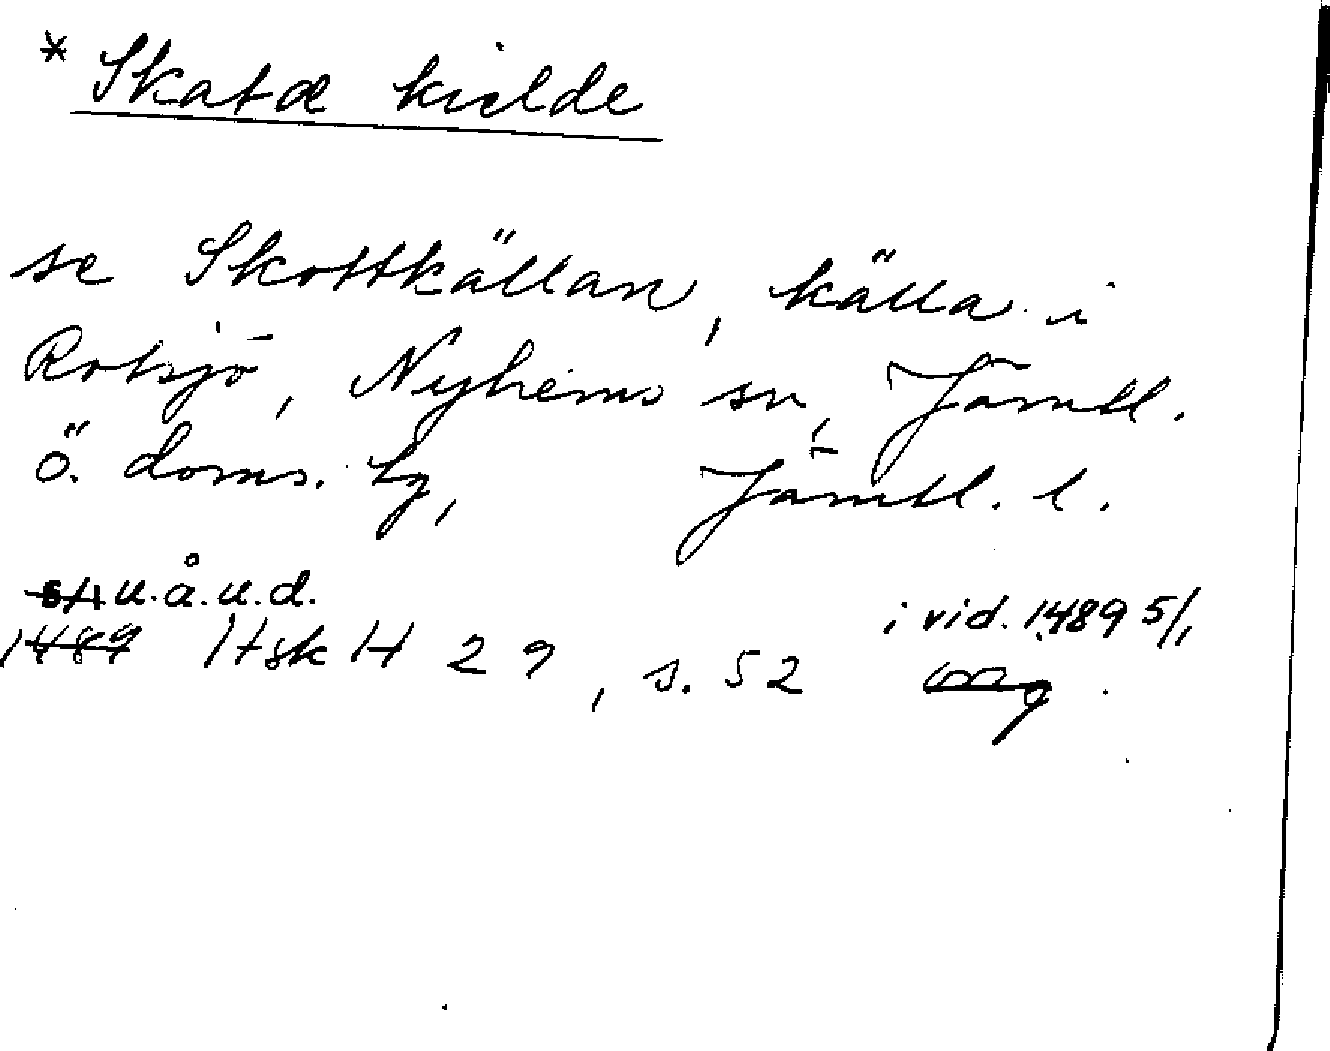 * Skatæ kielde
se Skottkällan, källa i
Rotsjö, Nyhems sn, Jämtl.
ö. doms. tg, Jämtl. l.
5/1 u.å.u.d.
1489 Hsk H 29, s. 52 i vid. 1489 5/1